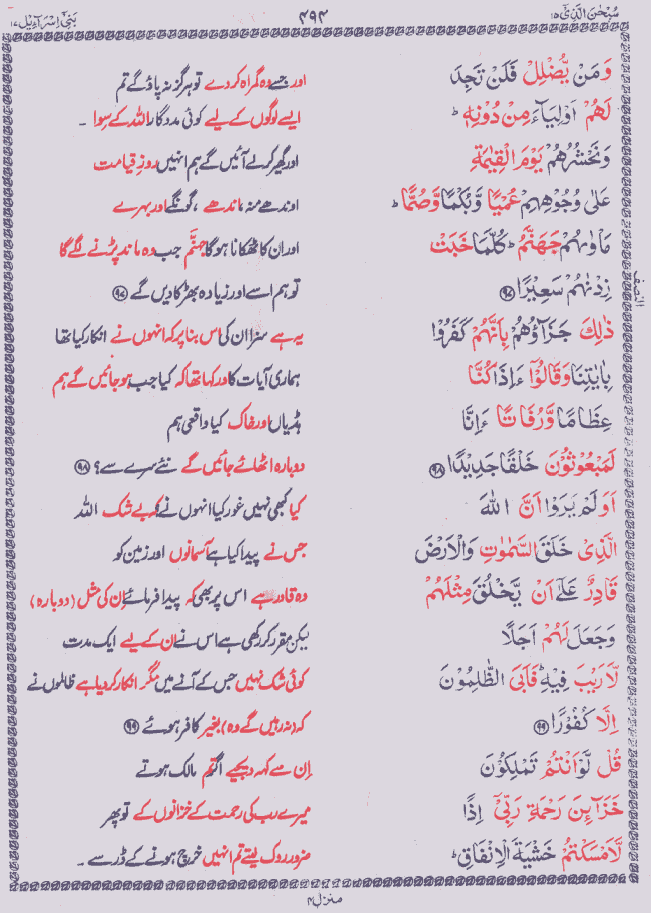 سُبْحٰنَ الَّذِیْۤ ۱۵
۴۹۴
بَنِیْۤ اِسْرَآءِیْل ۱۷
وَمَنْ یُّضْلِلْ فَلَنْ تَجِدَ
اور جسے وہ گمراہ کر دے تو ہرگز نہ پاؤ گے تم
لَهُمْ اَوْلِیَآءَ مِنْ دُوْنِهٖ ؕ
ایسے لوگوں کے لیے کوئی مددگار اللہ کے سوا ۔
وَنَحْشُرُهُمْ یَوْمَ الْقِیٰمَةِ
اور گھیر کر لے آئیں گے ہم انہیں روزِ قیامت
عَلٰی وُجُوْهِهِمْ عُمْیًا وَّبُكْمًا وَّصُمًّا ؕ
اوندھے منہ، اندھے ، گونگے اور بہرے
مَاْوٰىهُمْ جَهَنَّمُ ؕ كُلَّمَا خَبَتْ
اور ان کا ٹھکانا ہوگا جہنّم جب وہ ماند پڑنے لگے گا
زِدْنٰهُمْ سَعِیْرًا ﴿۹۷﴾
تو ہم اسے اور زیادہ بھڑکا دیں گے ﴿۹۷﴾
ذٰلِكَ جَزَآؤُهُمْ بِاَنَّهُمْ كَفَرُوْا
یہ ہے سزا ان کی اس بنا پر کہ انہوں نے انکار کیا تھا
بِاٰیٰتِنَا وَقَالُوْۤا ءَاِذَا كُنَّا
ہماری آیات کا اور کہا تھا کہ کیا جب ہو جائیں گے ہم
عِظَامًا وَّرُفَاتًا ءَاِنَّا
ہڈیاں اور خاک کیا واقعی ہم
لَمَبْعُوْثُوْنَ خَلْقًا جَدِیْدًا ﴿۹۸﴾
دوبارہ اٹھائے جائیں گے نئے سرے سے؟ ﴿۹۸﴾
اَوَلَمْ یَرَوْا اَنَّ اللّٰهَ
کیا کبھی نہیں غور کیا انہوں نے کہ بے شک اللہ
الَّذِیْ خَلَقَ السَّمٰوٰتِ وَالْاَرْضَ
جس نے پیدا کیا ہے آسمانوں اور زمین کو
قَادِرٌ عَلٰۤی اَنْ یَّخْلُقَ مِثْلَهُمْ
وہ قادر ہے اس پر بھی کہ پیدا فرمائے ان کی مثل (دوبارہ)
وَجَعَلَ لَهُمْ اَجَلًا
لیکن مقرر کر رکھی ہے اس نے ان کے لیے ایک مدت
لَّا رَیْبَ فِیْهِ ؕ فَاَبَی الظّٰلِمُوْنَ
کوئی شک نہیں جس کے آنے میں مگر انکار کر دیا ہے ظالموں نے
اِلَّا كُفُوْرًا ﴿۹۹﴾
کہ (نہ رہیں گے وہ) بغیر کافر ہوئے ﴿۹۹﴾
قُلْ لَّوْ اَنْتُمْ تَمْلِكُوْنَ
اِن سے کہہ دیجیے اگر تم مالک ہوتے
خَزَآىِٕنَ رَحْمَةِ رَبِّیْۤ اِذًا
میرے رب کی رحمت کے خزانوں کے تو پھر
لَّاَمْسَكْتُمْ خَشْیَةَ الْاِنْفَاقِ ؕ
ضرور روک لیتے تم انہیں خرچ ہونے کے ڈر سے ۔
النصف
منزل ۴